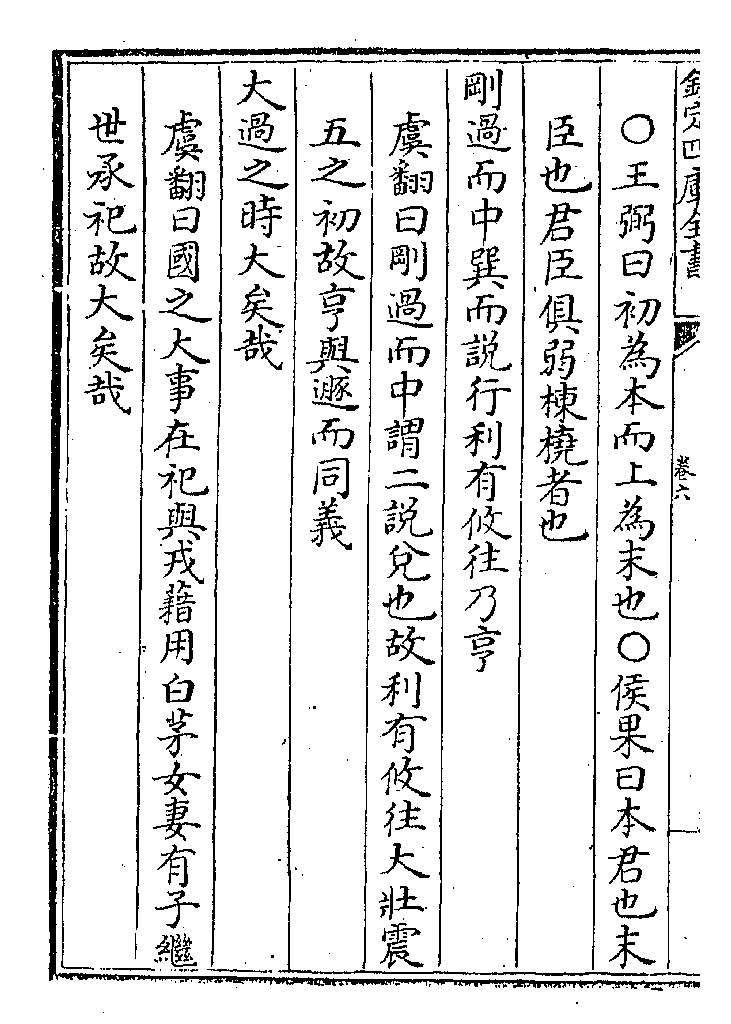 欽定四庫全書
卷六
○王弼曰初為本而上為末也○侯果曰本君也末
臣也君臣俱弱棟橈者也
剛過而中巽而説行利有攸往乃亨
虞翻曰剛過而中謂二説兌也故利有攸往大壯震
五之初故亨與遯而同義
大過之時大矣哉
虞翻曰國之大事在祀與戎藉用白茅女妻有子繼
世承祀故大矣哉